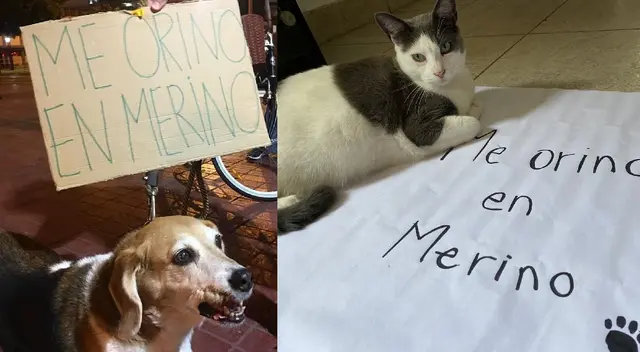 ME ORINO
EN MERINO
Me orino
en
Merino